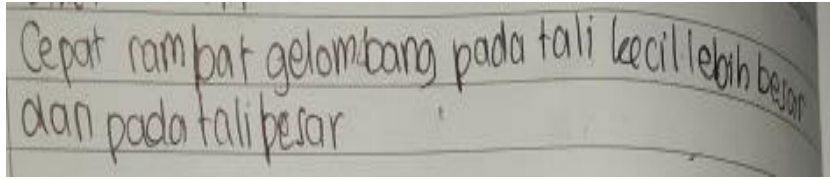 Cepat rambat gelombang pada tali kecil lebih besar
dan pada tali besar